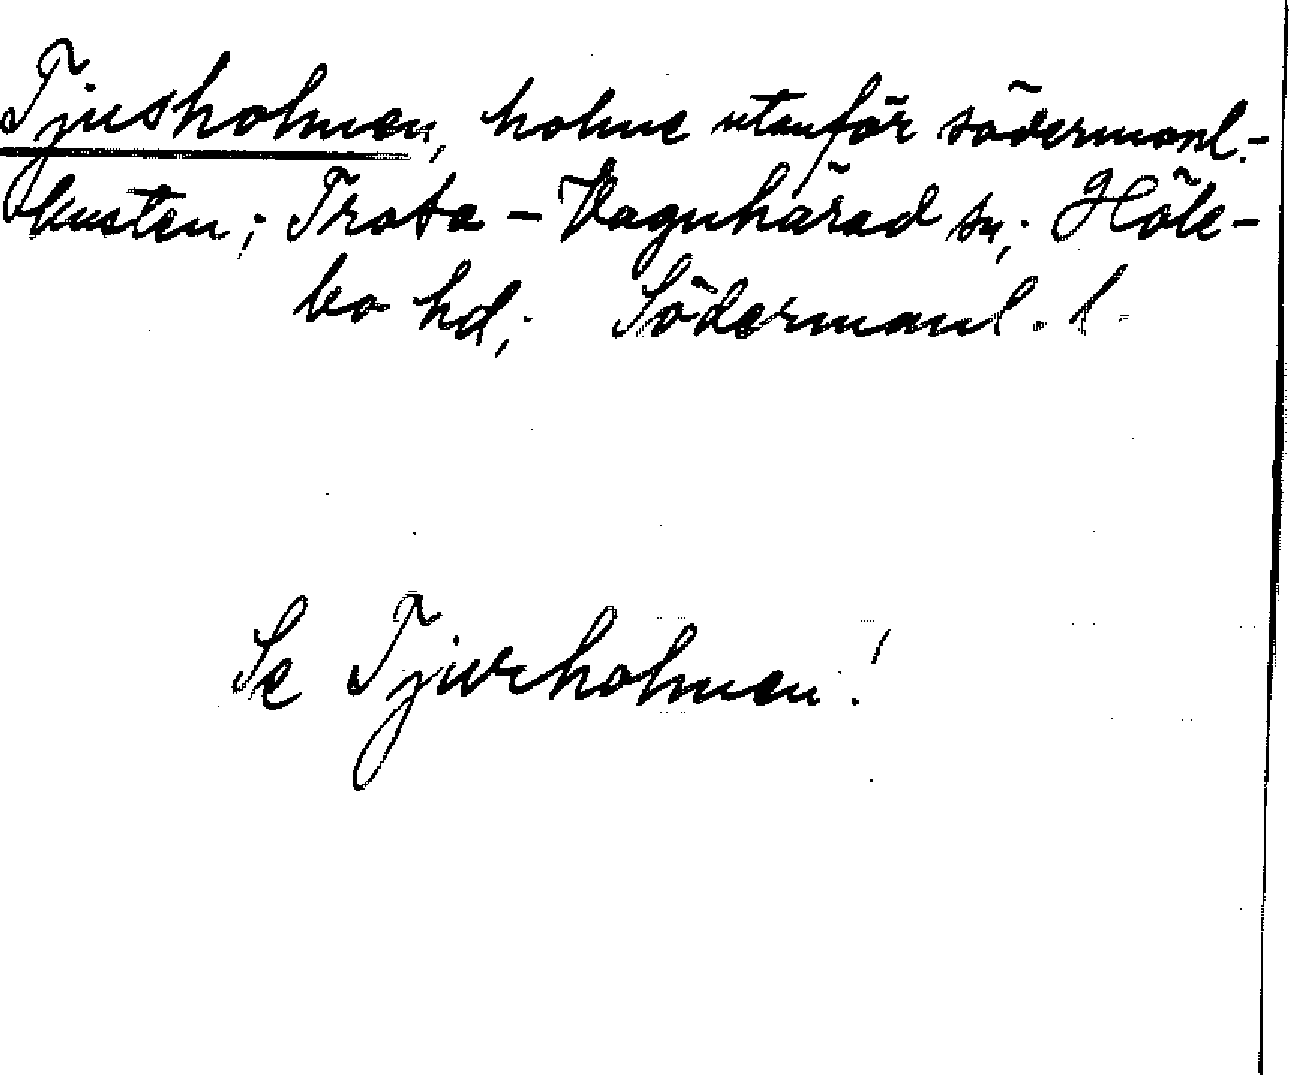 Tjusholmen, holme utanför södermanl.-
kusten; Trosa - Vagnhärad sn; Höle-
bo hd; Södermanl. l.
Se Tjurholmen!